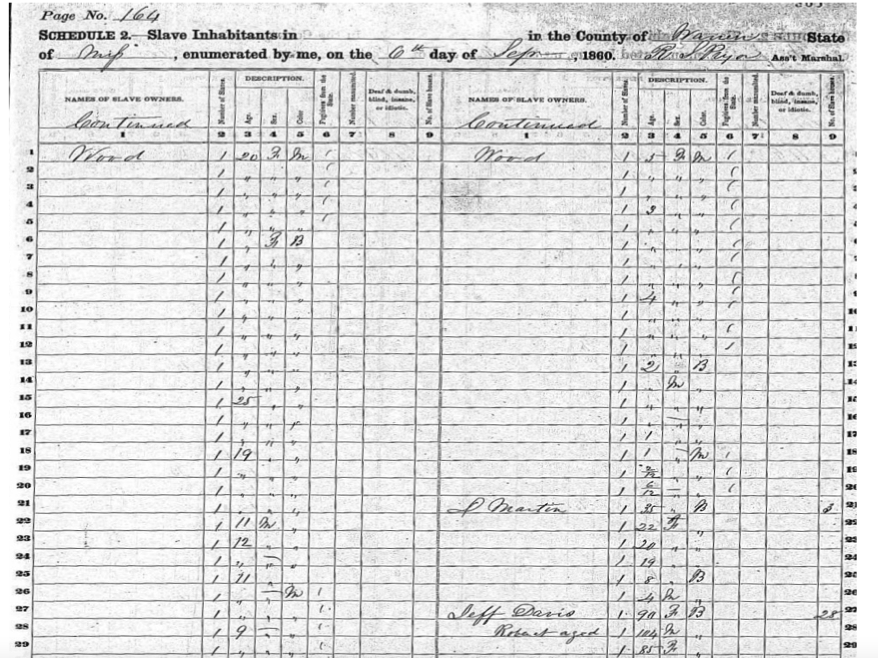 Page No. 164
SCHEDULE 2.—Slave Inhabitants in in the County of Warren State
of Miss, enumerated by me, on the 6th day of Sep, 1860. R. S. Pryor Ass't Marshal.
NAMES OF SLAVE OWNERS. Number of Slaves. DESCRIPTION. Age. Sex. Color. Fugitives from the State. Number manumitted. Deaf & dumb, blind, insane, or idiotic. No. of Slave houses. NAMES OF SLAVE OWNERS. Number of Slaves. DESCRIPTION. Age. Sex. Color. Fugitives from the State. Number manumitted. Deaf & dumb, blind, insane, or idiotic. No. of Slave houses.
Continued Continued
1 2 3 4 5 6 7 8 9 1 2 3 4 5 6 7 8 9
1 Wood 1 20 F M Wood 1 5 F M
2 1 " " " 1 " " "
3 1 " " " 1 " " "
4 1 " " " 1 3 " "
5 1 " " " 1 " " "
6 1 " F B 1 " " "
7 1 " " " 1 " " "
8 1 " " " 1 " " "
9 1 " " " 1 4 " "
10 1 " " " 1 " " "
11 1 " " " 1 " " "
12 1 " " " 1 " " "
13 1 " " " 1 2 " B
14 1 " " " 1 " M "
15 1 25 " " 1 " " "
16 1 " " " 1 " " "
17 1 " " " 1 1 " "
18 1 19 " " 1 1 " M
19 1 " " " 1
20 1 " " " 1 6/12
21 1 " " " L Martin 1 35 " B
22 1 11 M " 1 22 F "
23 1 12 " " 1 20 " "
24 1 " " " 1 19 " "
25 1 11 " " 1 8 " B
26 1 " " M 1 4 M "
27 1 " " " Jeff Davis 1 90 F B 28
28 1 9 " " Robert aged 1 104 M "
29 1 " " " 1 85 F "